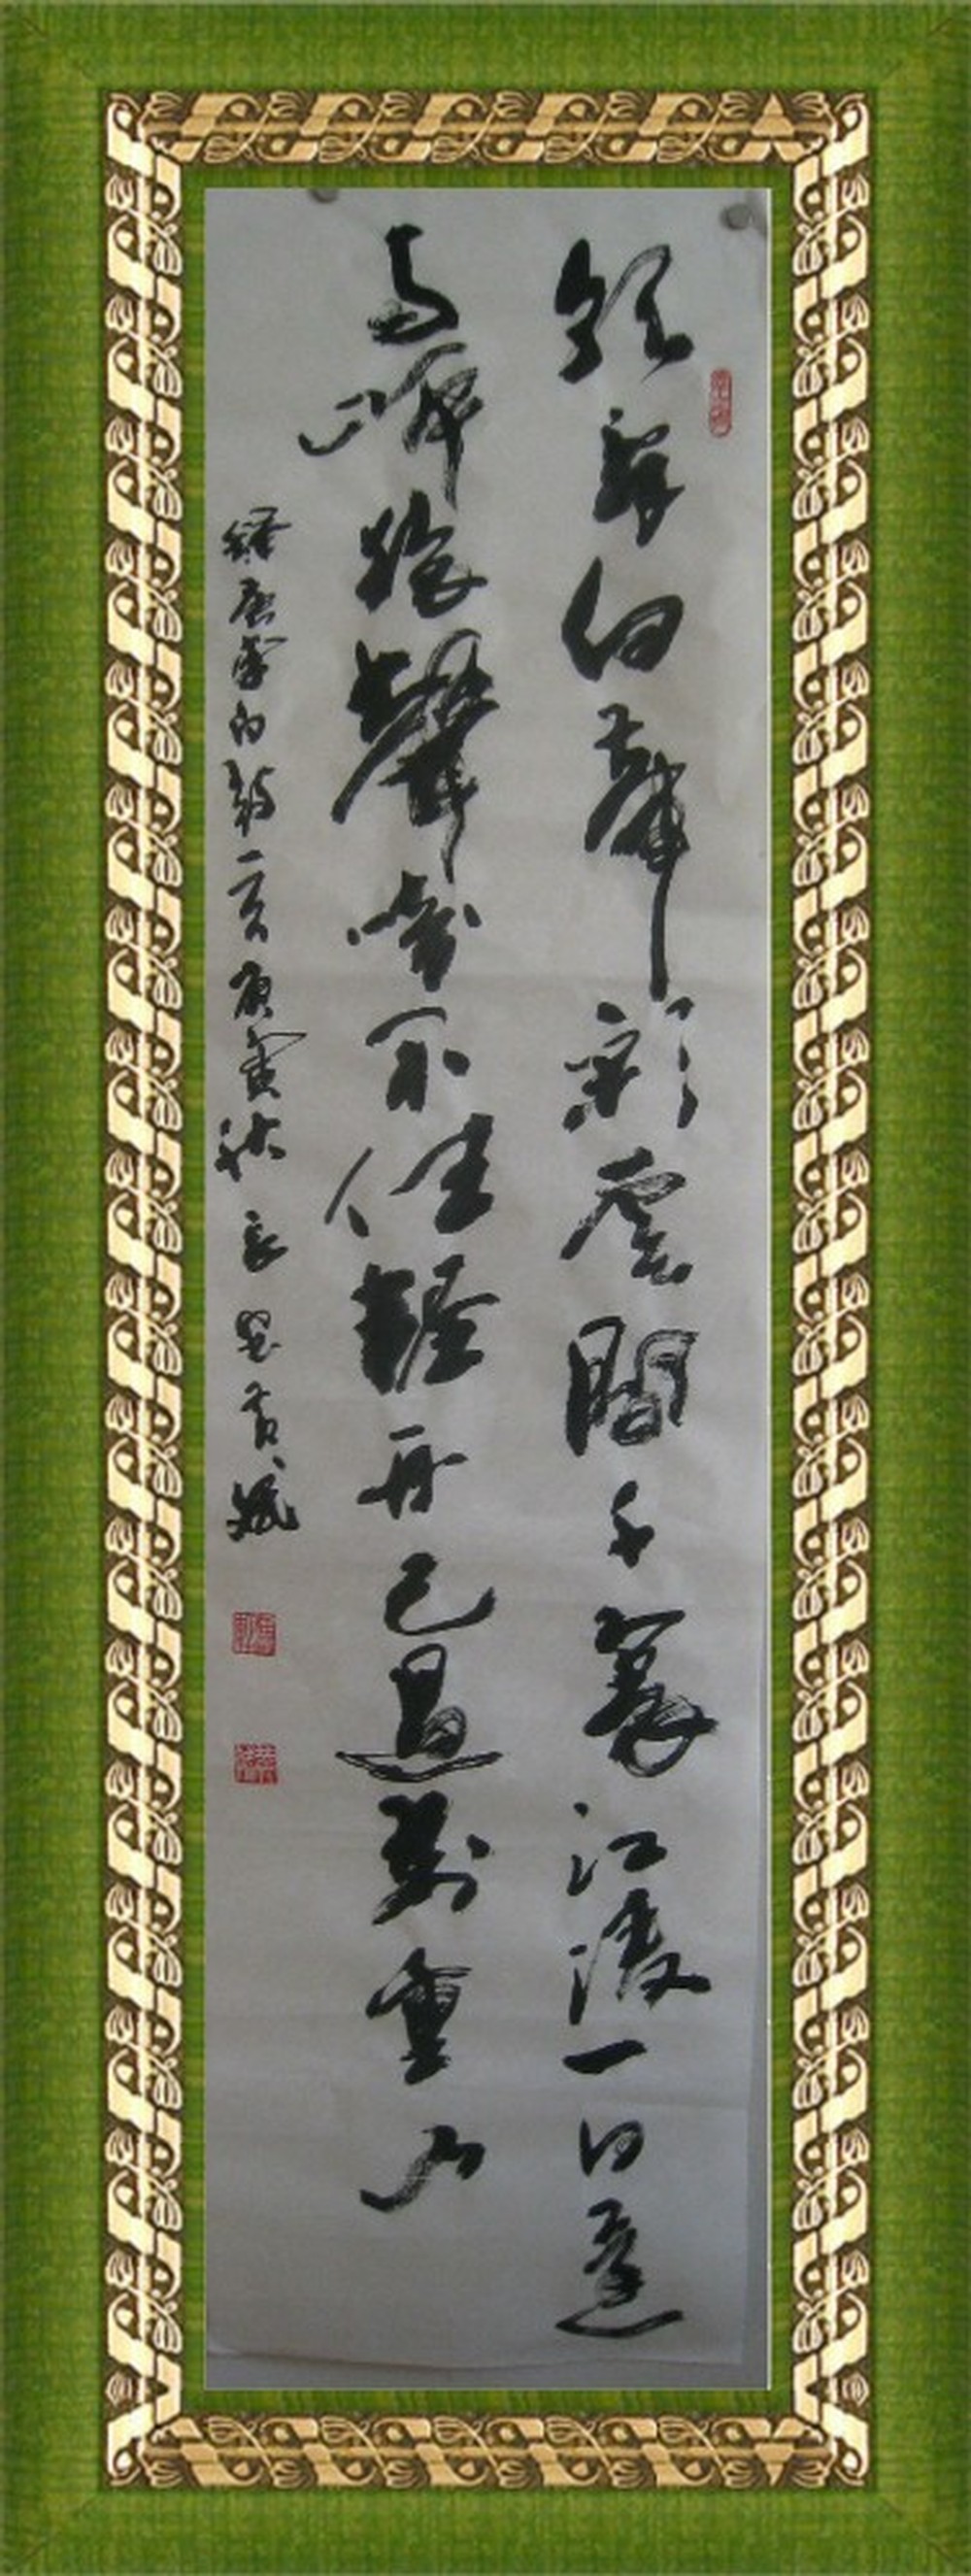 朝辭白帝彩雲間千裏江陵一日還
两岸猿聲啼不住輕舟已過萬重山
錄唐李白詩一首庚寅秋